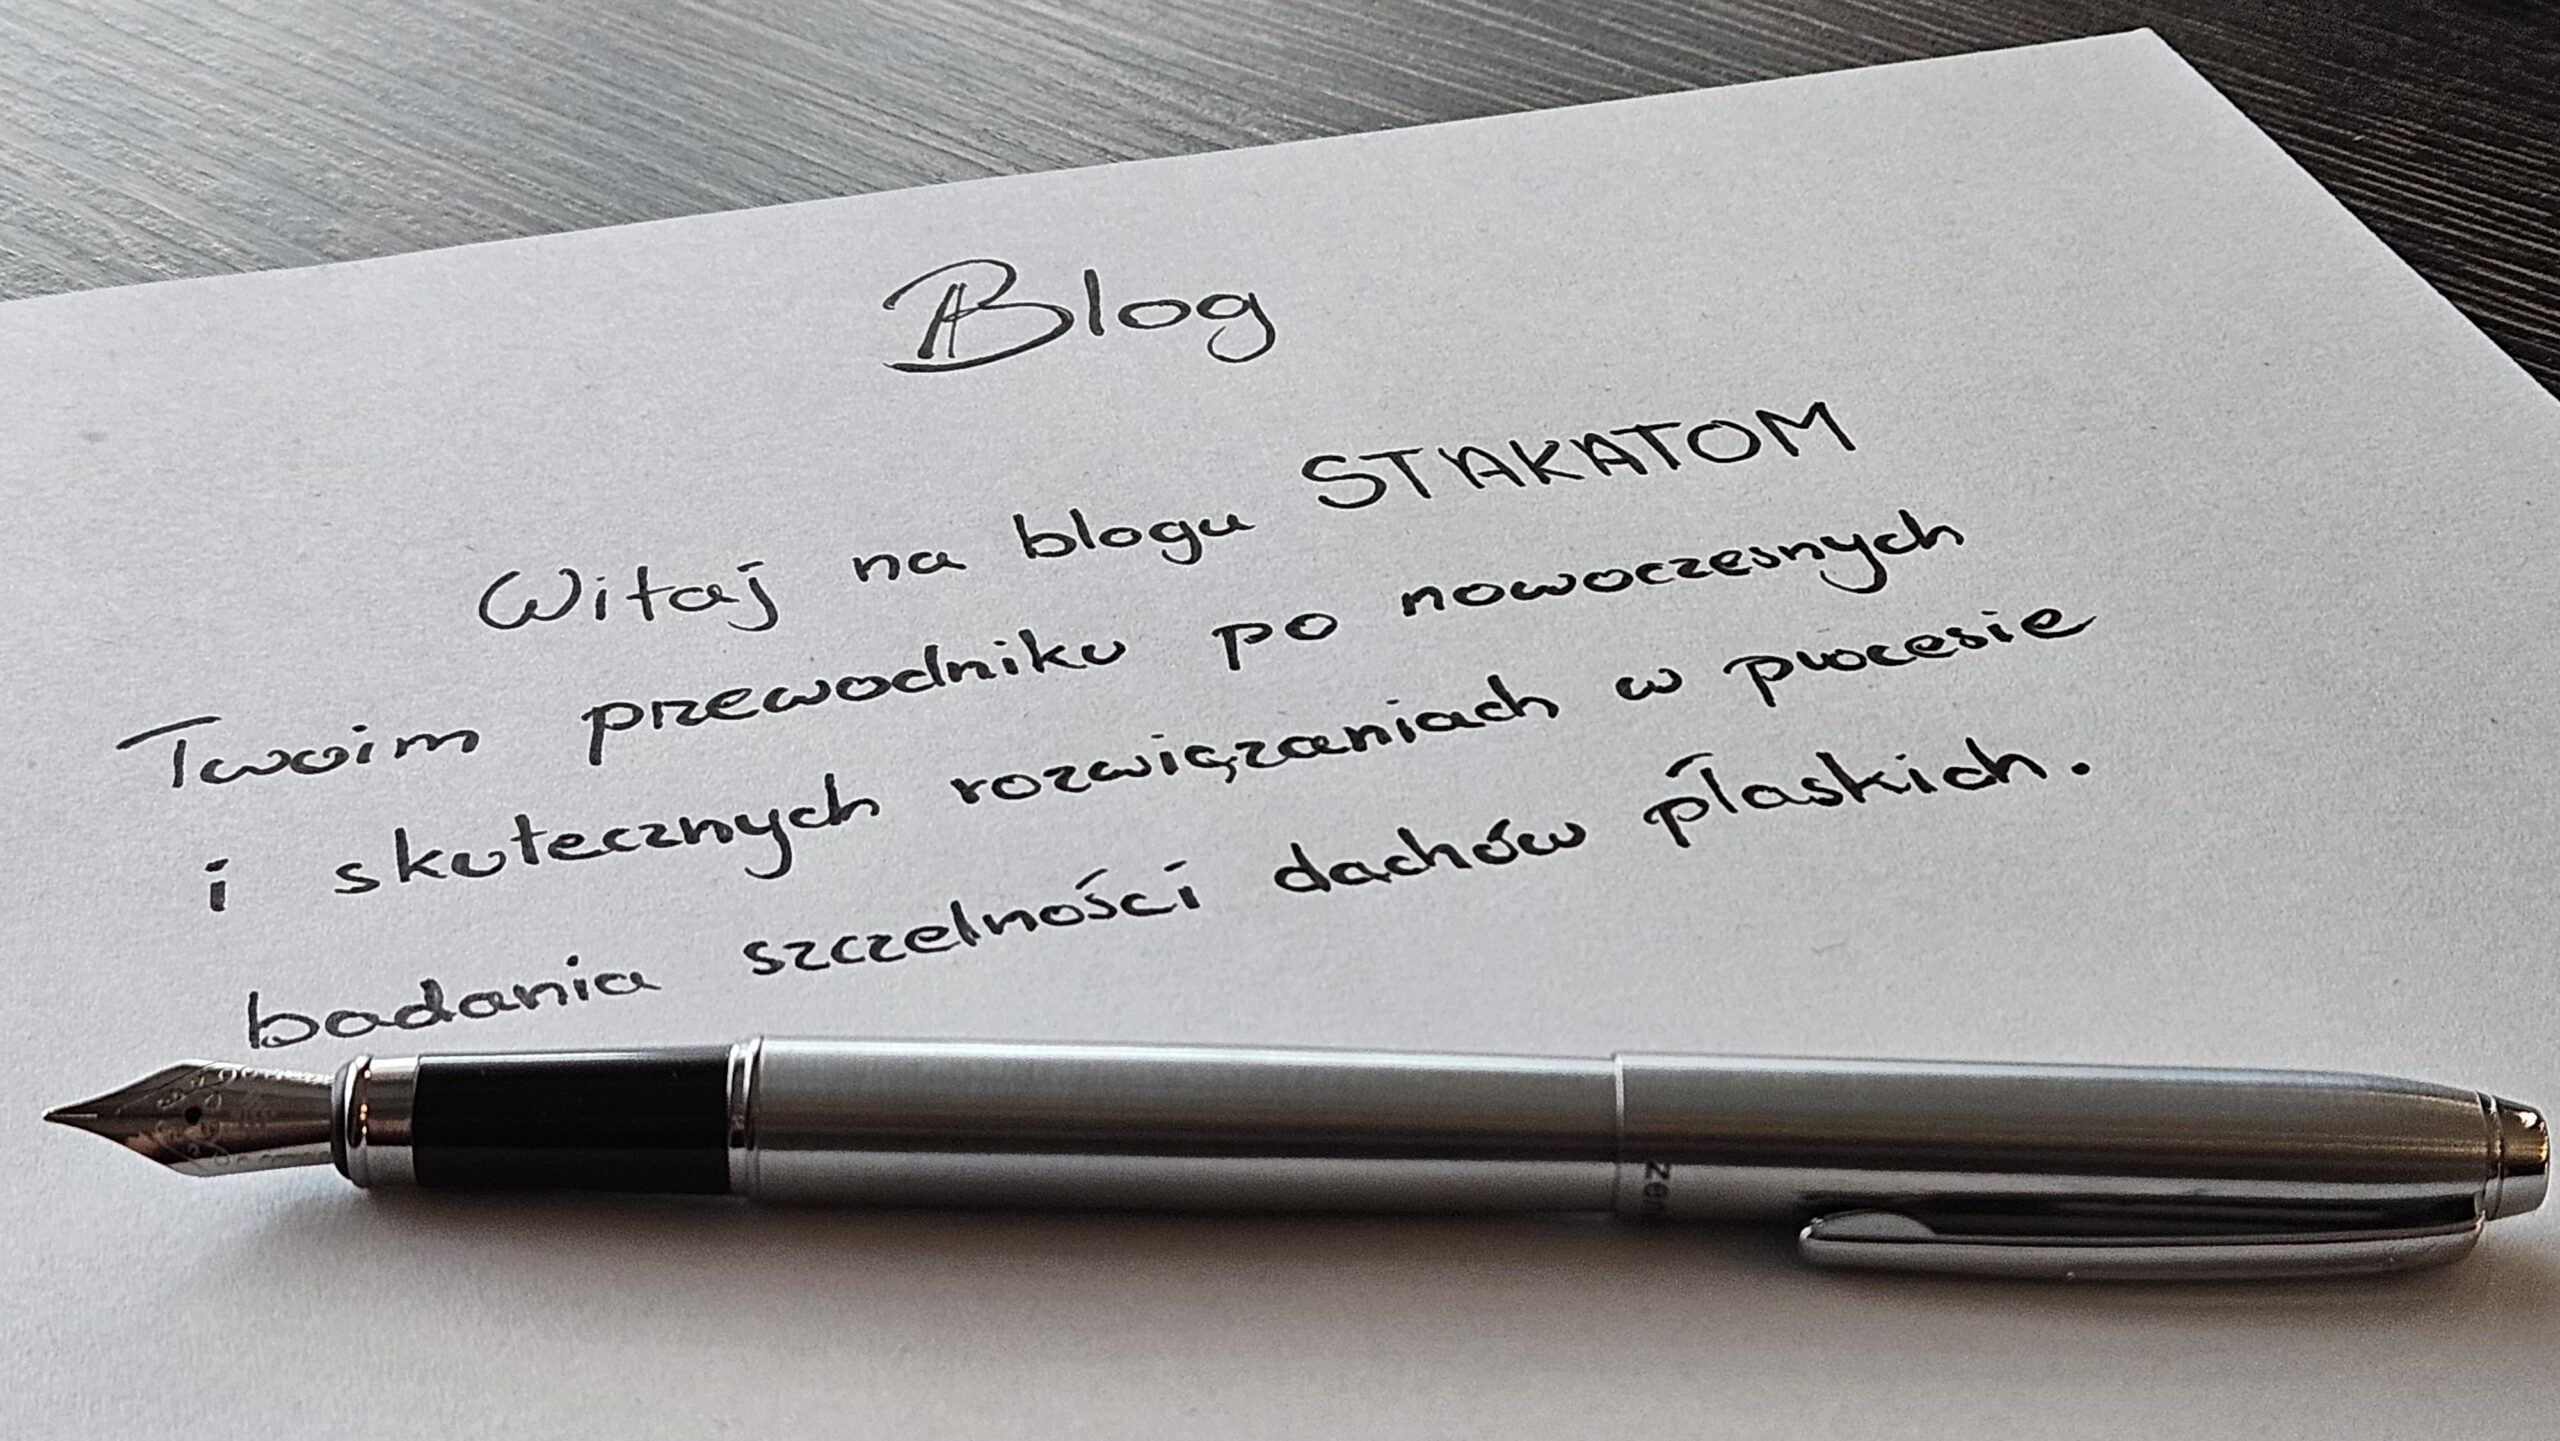 Blog
Witaj na blogu STAKATOM
Twoim przewodniku po nowoczesnych
i skutecznych rozwiązaniach w procesie
badania szczelności dachów płaskich.